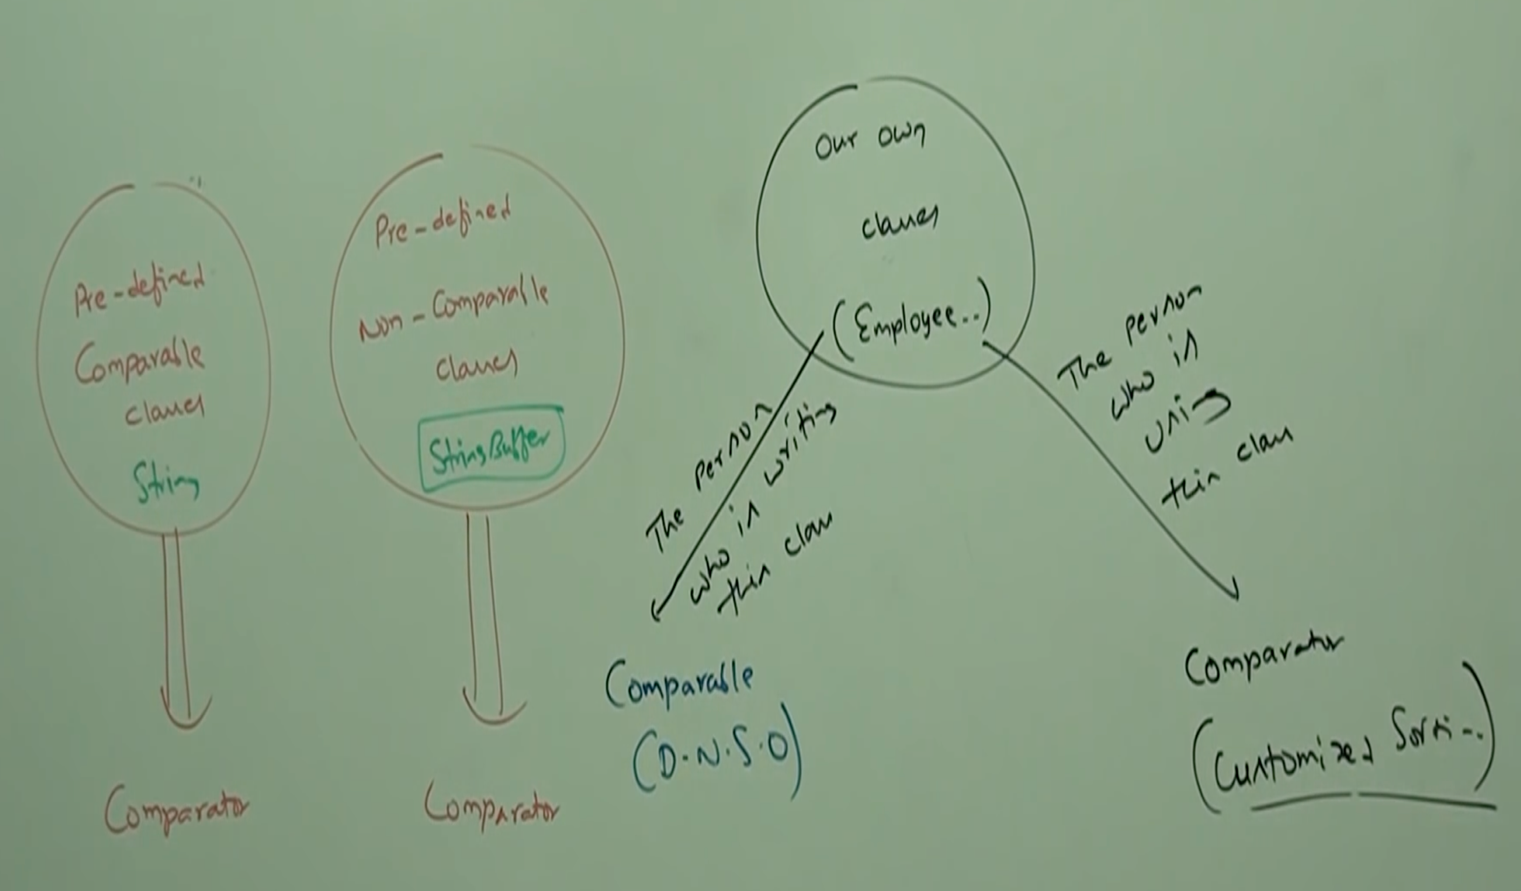 Pre-defined
Comparable
classes
String
Comparator
Pre-defined
Non-Comparable
classes
StringBuffer
Comparator
Our own
classes
(Employee..)
The person
who is writing
this class
Comparable
(D.N.S.O)
The person
who is
using
this class
Comparator
(Customized Sorti...)